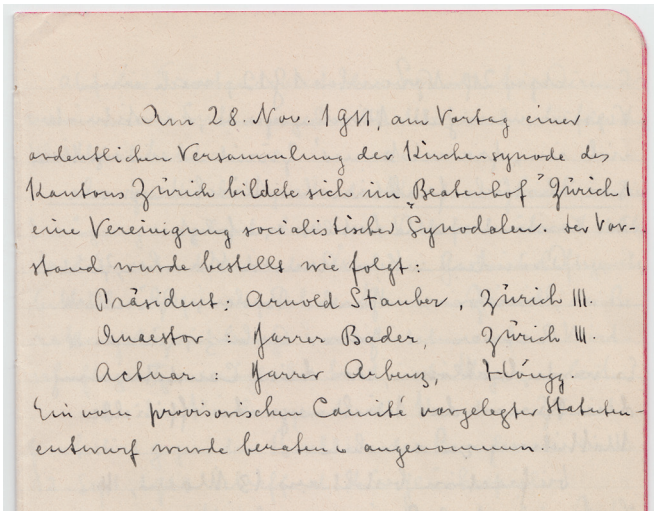 Am 28. Nov. 1911, am Vortag einer
ordentlichen Versammlung der Kirchensynode des
Kantons Zürich bildete sich im „Beatenhof“ Zürich 1
eine Vereinigung socialistischer Synodalen. Der Vor-
stand wurde bestellt wie folgt:
Präsident: Arnold Stauber, Zürich III.
Quaestor : Pfarrer Bader, Zürich III.
Actuar : Pfarrer Arbenz, Höngg
Ein vom provisorischen Comité vorgelegter Statuten-
entwurf wurde beraten & angenommen.